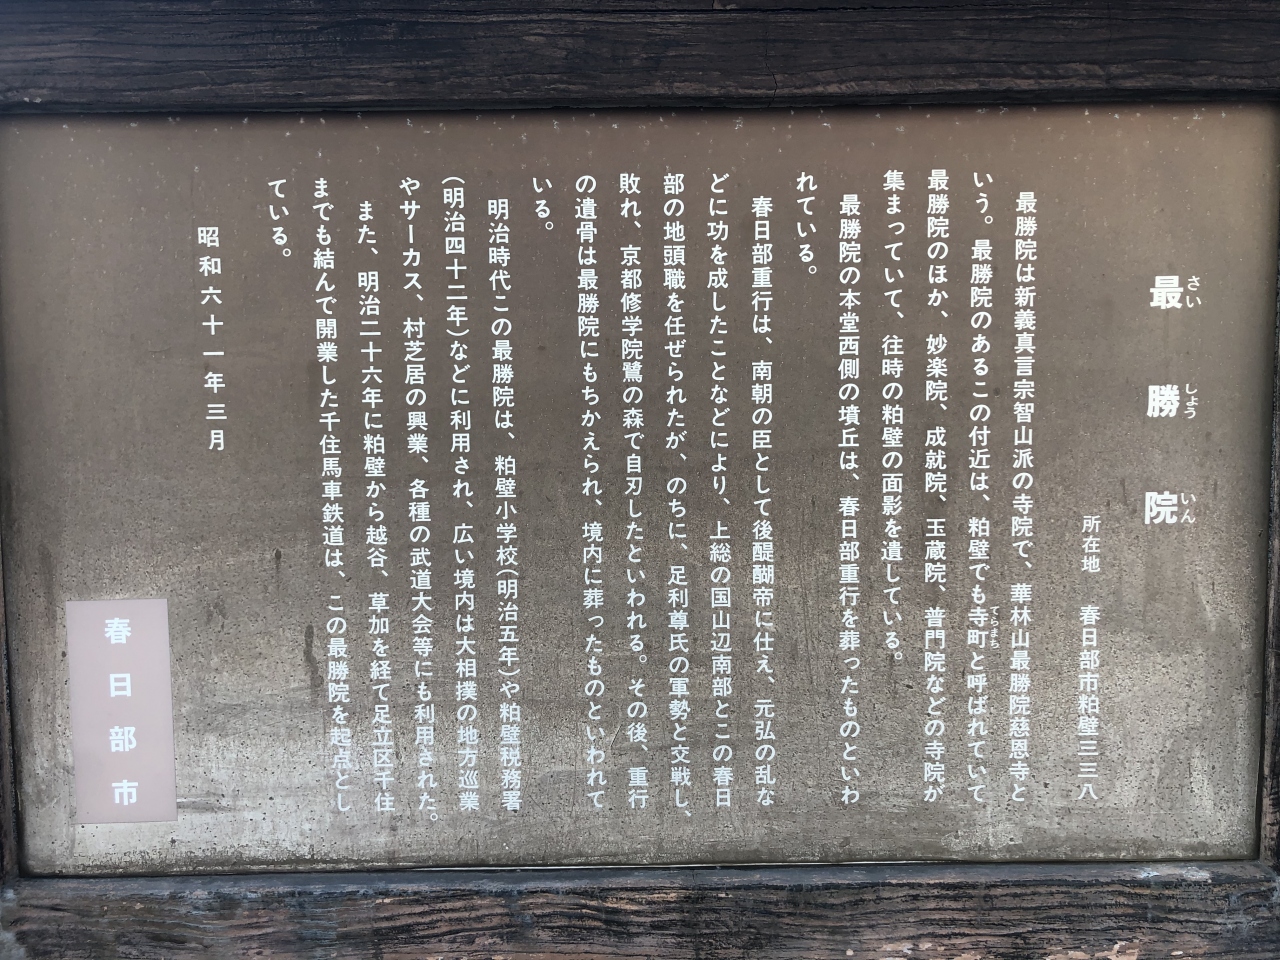 最勝院
さいしょういん
所在地　春日部市粕壁三三八
最勝院は新義真言宗智山派の寺院で、華林山最勝院慈恩寺と
いう。最勝院のあるこの付近は、粕壁でも寺町と呼ばれていて
てらまち
最勝院のほか、妙楽院、成就院、玉蔵院、普門院などの寺院が
集まっていて、往時の粕壁の面影を遺している。
最勝院の本堂西側の墳丘は、春日部重行を葬ったものといわ
れている。
春日部重行は、南朝の臣として後醍醐帝に仕え、元弘の乱な
どに功を成したことなどにより、上総の国山辺南部とこの春日
部の地頭職を任ぜられたが、のちに、足利尊氏の軍勢と交戦し、
敗れ、京都修学院鷺の森で自刃したといわれる。その後、重行
の遺骨は最勝院にもちかえられ、境内に葬ったものといわれて
いる。
明治時代この最勝院は、粕壁小学校（明治五年）や粕壁税務署
（明治四十二年）などに利用され、広い境内は大相撲の地方巡業
やサーカス、村芝居の興業、各種の武道大会等にも利用された。
また、明治二十六年に粕壁から越谷、草加を経て足立区千住
までも結んで開業した千住馬車鉄道は、この最勝院を起点とし
ている。
昭和六十一年三月
春日部市